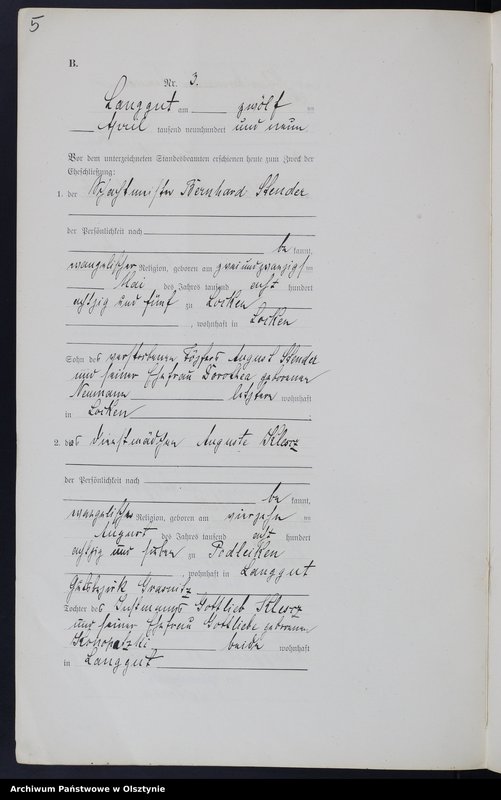 5
B.
Nr. 3.
Langgut am zwölf ten
April tausend neunhundert und neun
Vor dem unterzeichneten Standesbeamten erschienen heute zum Zweck der
Eheschließung:
1. der Schachtmeister Bernhard Stender
der Persönlichkeit nach
be kannt,
evangelischer Religion, geboren am zweiundzwanzigsten
Mai des Jahres tausend acht hundert
achtzig und fünf zu Locken
, wohnhaft in Locken
Sohn des verstorbenen Töpfers August Stender
und seiner Ehefrau Dorothea geborenen
Neumann letztere wohnhaft
in Locken
2. das Dienstmädchen Auguste
der Persönlichkeit nach
be kannt,
evangelischer Religion, geboren am vierzehn ten
August des Jahres tausend acht hundert
achtzig und sieben zu Podleiken
, wohnhaft in Langgut
Gutsbezirk
Tochter des Instmanns Gottlieb
und seiner Ehefrau Gottliebe geborenen
beide wohnhaft
in Langgut
Archiwum Państwowe w Olsztynie